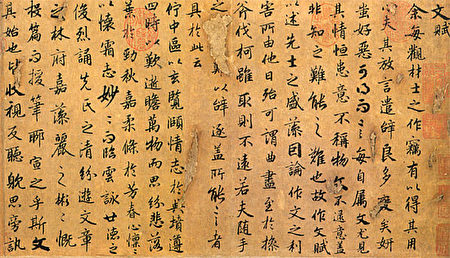 文賦
余每觀材士之作竊有以得其用
心夫其放言遣辭良多變矣妍
蚩好惡可得而言每自属文尤見
其情恒患意不稱物文不逮意盖
非知之難能之難也故作文賦
以述先士之盛藻因論作文之利
害所由他日殆可謂曲盡至於操
斧伐柯雖取則不遠若夫隨手
之難以辭逐盖所能言者
具於此云
佇中區以玄覽頤情志於典墳遵
四時以歎逝瞻萬物而思紛悲落
葉於勁秋嘉柔條於芳春心懍〻
以懷霜志眇〻而臨雲詠世德之
俊烈誦先民之清芬遊文章
之林府嘉藻麗之彬〻慨
投篇而援筆聊宣之乎斯文
其始也皆收視反聽耽思旁訊